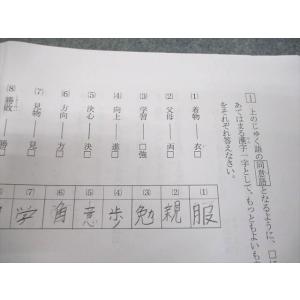 1 上のじゅく語の同意語となるように、□に
あてはまる漢字一字として、もっともよいも
をそれぞれ答えなさい。
(1) 着物 ―― 衣□
(2) 父母 ―― 両□
(3) 学習 ―― □強
(4) 向上 ―― 進□
(5) 決心 ―― 決□
(6) 方向 ―― 方□
(7) 見物 ―― 見□
(8) 勝敗 ―― 勝
(1) 服
(2) 親
(3) 勉
(4) 歩
(5) 意
(6) 角
(7) 学